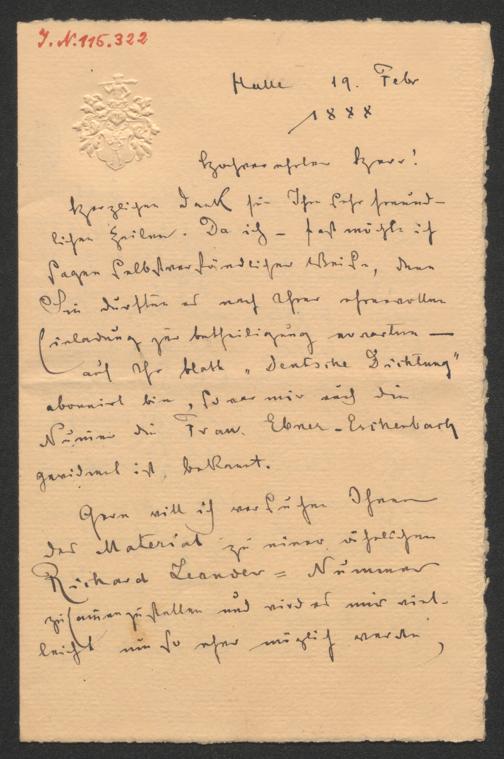 J.N. 115.322
Halle 19. Febr
1888
Hochverehrter Herr!
Herzlichen Dank für Ihre sehr freund-
lichen Zeilen. Da ich – fast möchte ich
sagen selbstverständlicher Weise, denn
Sie durften es nach Ihrer ehrenvollen
Einladung zur betheiligung erwarten —
auf Ihr blatt „Deutsche Dichtung"
abonnirt bin, so war mir auch die
Numer die Frau Ebner-Eschenbach
gewidmet ist, bekannt.
Gern will ich versuchen Ihnen
das Material zu einer ähnlichen
Richard Leander = Nummer
zusammenzustellen und wird es mir viel-
leicht um so eher möglich werden,